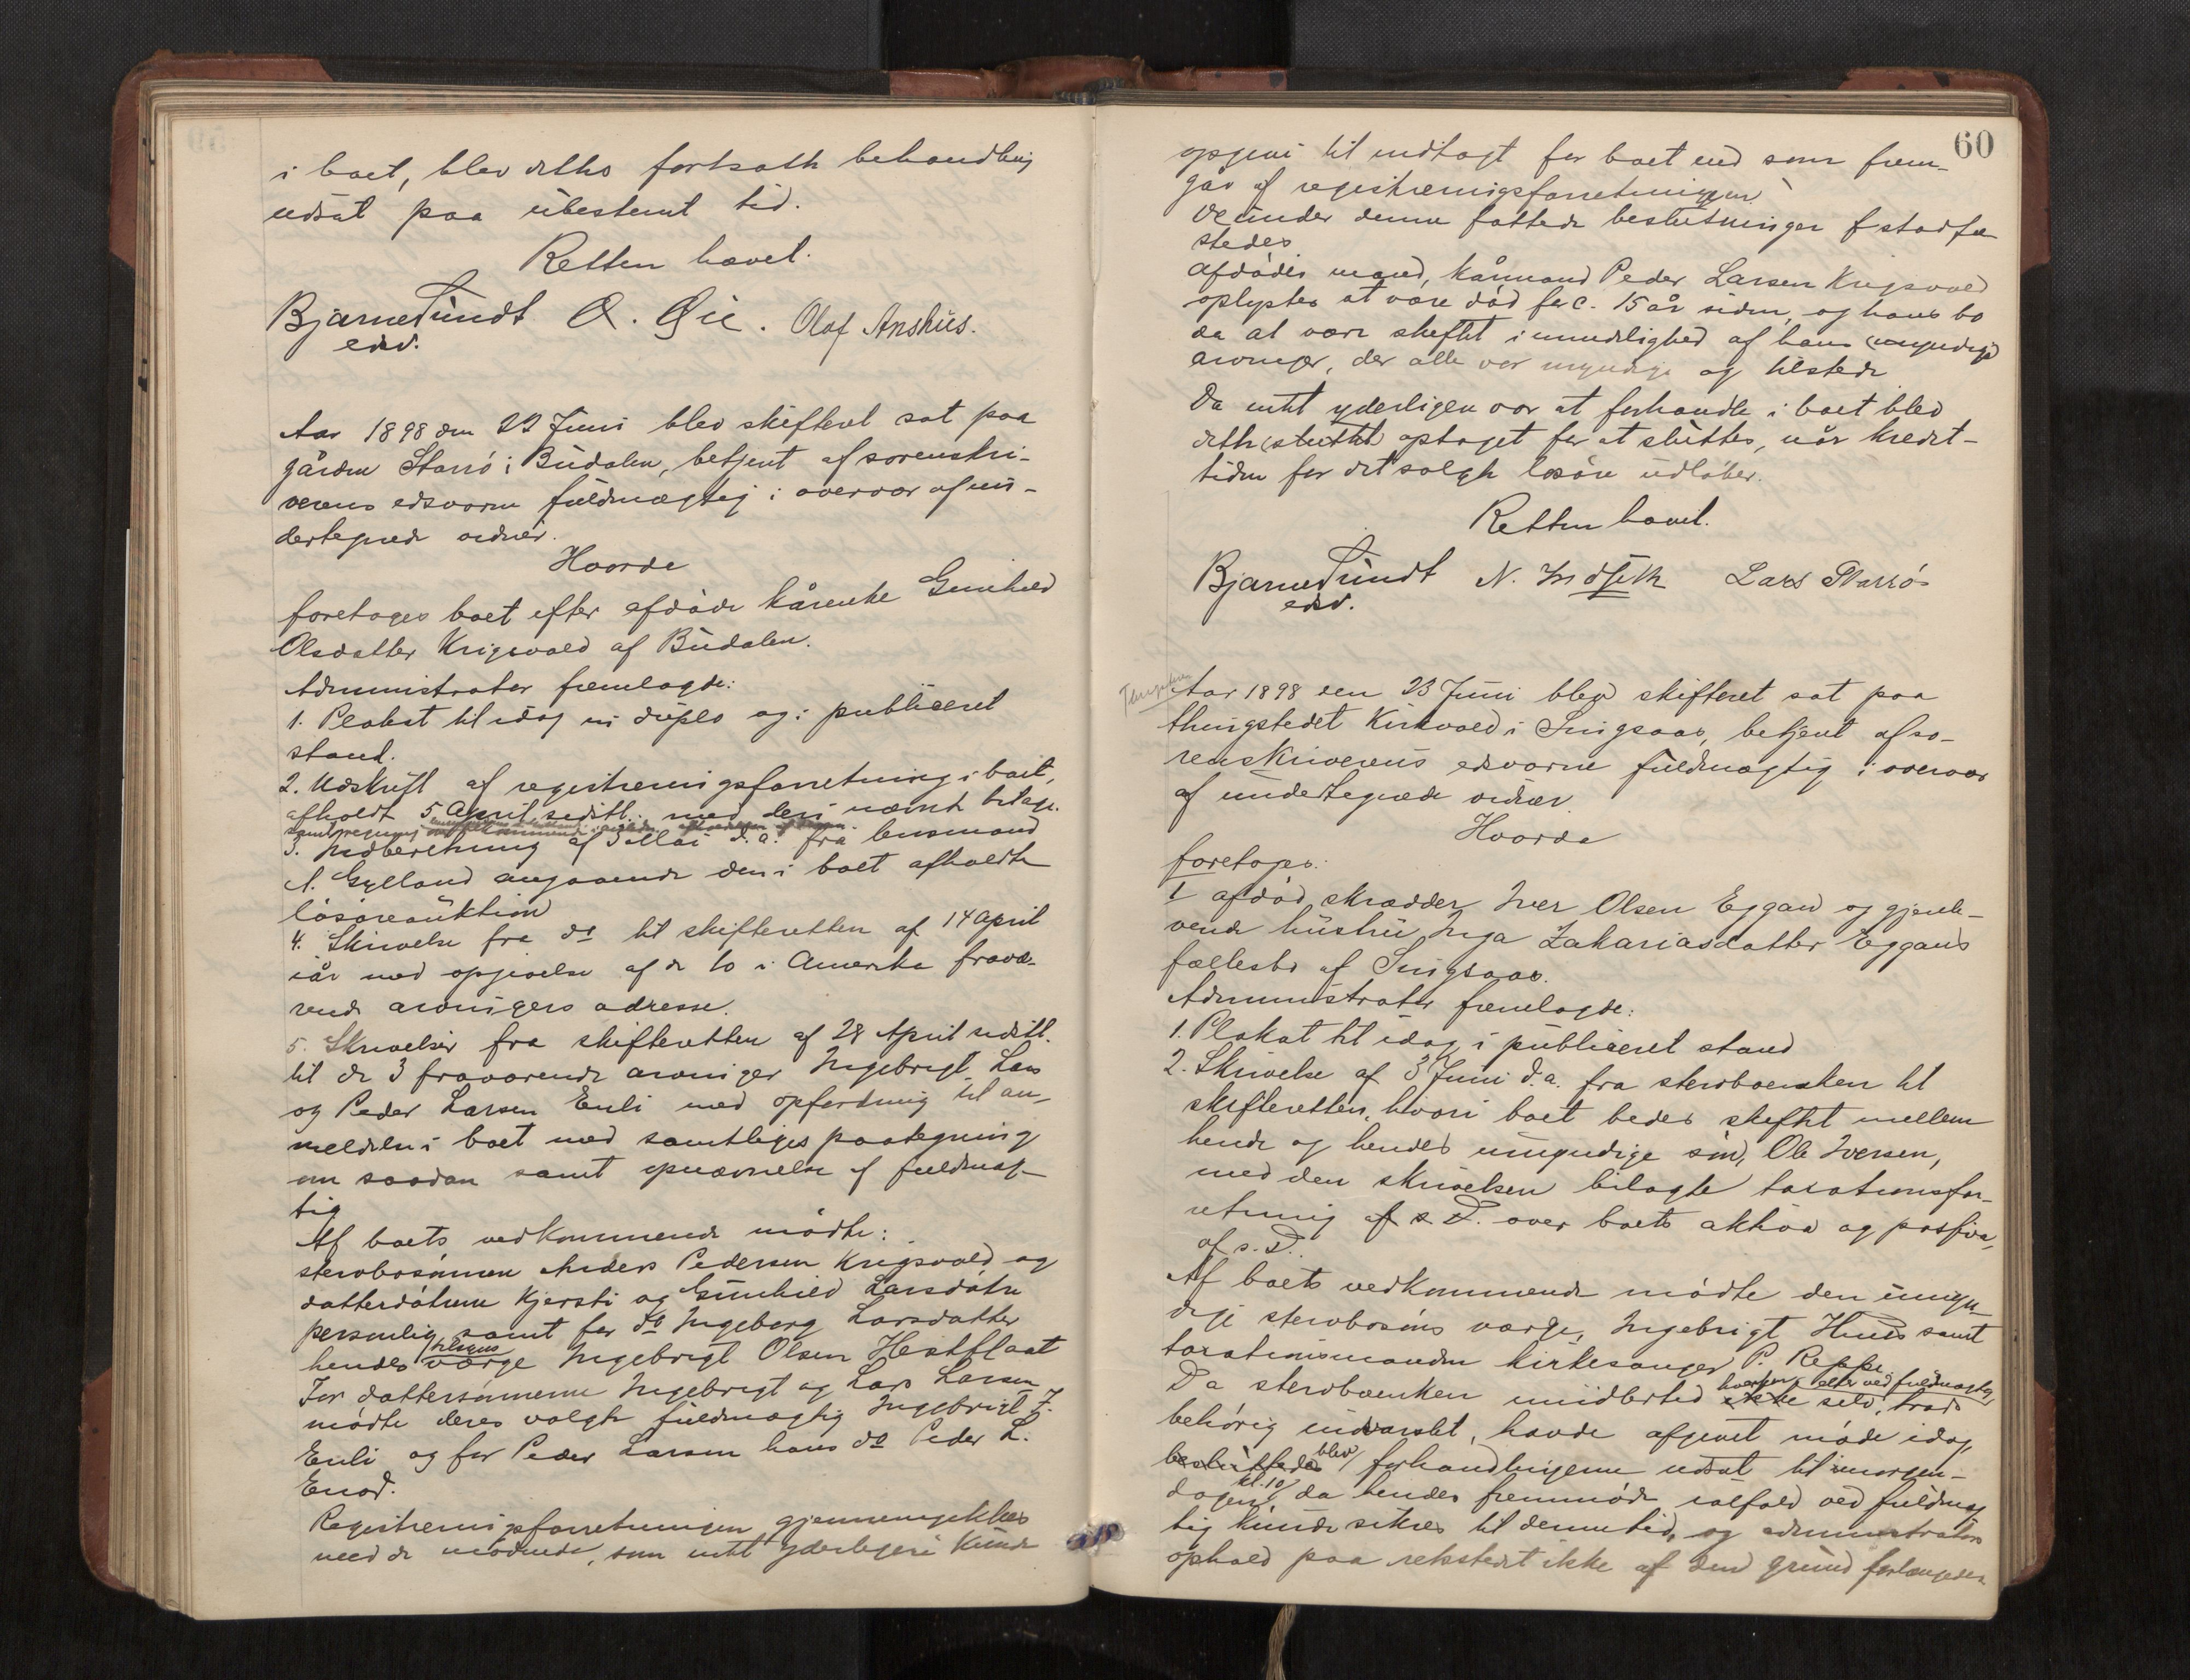 i boet, blev dettes fortsatte behandling
udsat paa ubestemt tid.
Retten hævet.
Bjarne Lundt O. Øie. Olaf Anshus.
edsv.
Aar 1898 den 22 Juni blev skifteret sat paa
gården Storrø i Budalen, betjent af sorenskri-
verens edsvorne fuldmægtig i overvær af un-
dertegnede vidner.
Hvorda
foretoges boet efter afdøde kårenke Gunhild
Olsdatter Krigsvold af Budalen.
Administrator fremlagde:
1. Plakat til idag in duplo og i publiceret
stand.
2. Udskrift af registreringsforretning i boet,
afholdt 5 April sidstl. med deri nævnt bilage.
3. Indberetning af 3 Mai d.a. fra lensmand
A. Gylland angaaende den i boet afholdte
løsøreauktion
4. Skrivelse fra do til skifteretten af 14 April
iår med opgivelse af de to i Amerika fravæ-
rende arvingers adresse.
5. Skrivelser fra skifteretten af 28 April sidstl.
til de 3 fraværende arvinger Ingebrigt, Lars
og Peder Larsen Enli med opfordring til an-
meldelse i boet med samtliges paategning
om saadan samt opnævnelse af fuldmæg-
tig
Af boets vedkommende mødte:
stervbosønnen Anders Pedersen Krigsvold og
datterdøtrene Kjersti og Gunhild Larsdøtre
personlig, samt for do Ingeborg Larsdatter
hendes værge Ingebrigt Olsen Hestflaat
For dattersønnerne Ingebrigt og Lars Larsen
mødte deres valgte fuldmægtig Ingebrigt J.
Enli og for Peder Larsen hans do Peder L.
Enod.
Registreringsforretningen gjennemgikkes
med de mødende, som intet yderligere kunde
60
opgive til indtægt for boet end som frem-
går af registreringsforretningen.
De under denne fattede beslutninger stadfæ
stedes
Afdødes mand, kårmand Peder Larsen Krigsvold
oplystes at være død for c. 15 år siden, og hans bo
da at være skiftet i mindelighed af hans (myndige)
arvinger, der alle var myndige og tilstede
Da intet yderligere var at forhandle i boet blev
dette (sluttet) optaget for at sluttes, når kredit-
tiden for det solgte løsøre udløber.
Retten hævet.
Bjarne Lundt N. Indseth Lars Storrø
edsv.
Aar 1898 den 23 Juni blev skifteret sat paa
thingstedet Kirkvold i Singsaas, betjent af so-
renskriverens edsvorne fuldmægtig i overvær
af undertegnede vidner.
Hvorda
foretoges:
1 afdød skrædder Iver Olsen Eggan og gjenle-
vende hustru Inga Zakariasdatter Eggans
fællesbo af Singsaas.
Administrator fremlagde:
1. Plakat til idag i publiceret stand
2. Skrivelse af 3 Juni d.a. fra stervboenken til
skifteretten, hvori boet bedes skiftet mellem
hende og hendes umyndige søn, Ole Iversen,
med den skrivelsen bilagte taxationsfor-
retning af s. D. over boets aktiva og passiva,
af s. D.
Af boets vedkommende mødte den umyn
dige stervbosøns værge, Ingebrigt Huus samt
taxationsmanden kirkesanger P. Reppe.
Da stervboenken imidlertid hverken selv eller ved fuldmægtig, trods
behørig indvarslet, havde afgivet møde idag,
besluttedes blev forhandlingerne udsat til imorgen-
dagen kl. 10, da hendes fremmøde ialfald ved fuldmæg
tig kunde sikres til denne tid, og administrators
ophold paa retsstedet ikke af den grund forlængedes